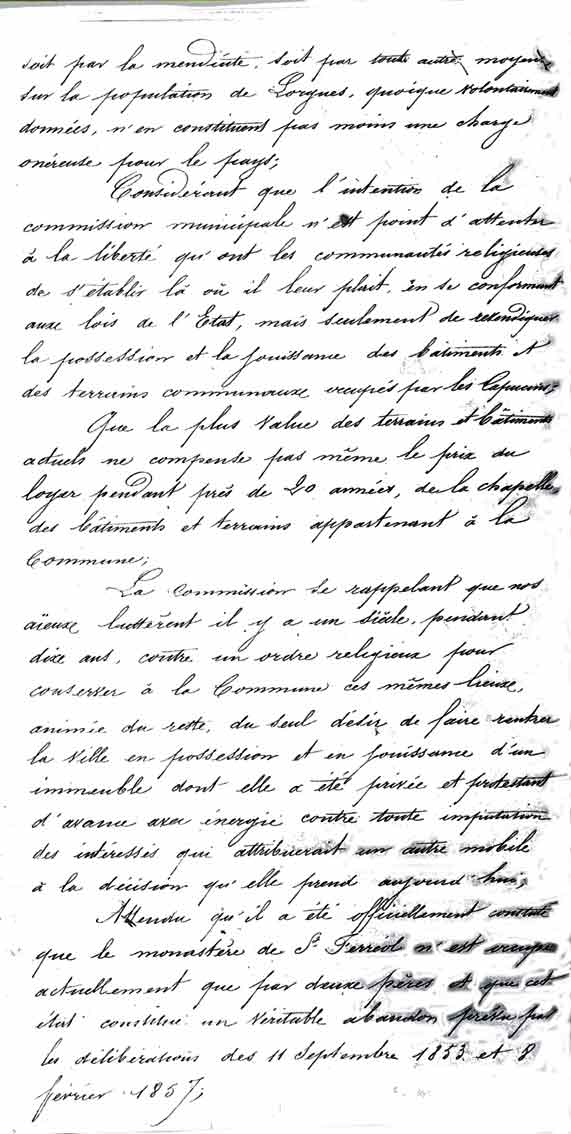 soit par la mendicité, soit par toute autre moyens
sur la population de Lorgues, quoique volontairement
données, n'en constituent pas moins une charge
onéreuse pour le pays;
Considérant que l'intention de la
commission municipale n'est point d'attenter
à la liberté qu'ont les communautés religieuses
de s'établir là où il leur plait, en se conformant
aux lois de l'Etat, mais seulement de revendiquer
la possession et la jouissance des bâtiments et
des terrains communaux occupés par les Capucins;
Que la plus value des terrains et bâtiments
actuels ne compense pas même le prix du
loyer pendant près de 20 années, de la chapelle,
des bâtiments et terrains appartenant à la
Commune;
La commission se rappelant que nos
aïeux luttèrent il y a un siècle, pendant
dix ans, contre un ordre religieux pour
conserver à la Commune ces mêmes lieux,
animée du reste, du seul désir de faire rentrer
la ville en possession et en jouissance d'un
immeuble dont elle a été privée et protestant
d'avance avec énergie contre toute imputation
des intéressés qui attribuerait un autre mobile
à la décision qu'elle prend aujourd'hui;
Attendu qu'il a été officiellement constaté
que le monastère de St Ferréol n'est occupé
actuellement que par deux pères et que cet
état constitue un véritable abandon prévu par
les délibérations des 11 Septembre 1853 et 8
février 1857;